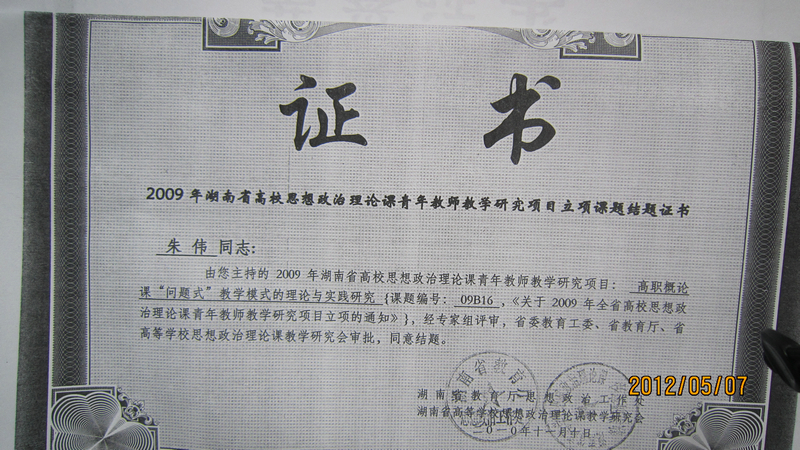 证 书
2009年湖南省高校思想政治理论课青年教师教学研究项目立项课题结题证书
朱 伟 同志：
由您主持的 2009 年湖南省高校思想政治理论课青年教师教学研究项目： 高职概论
课“问题式”教学模式的理论与实践研究 {课题编号： 09B16 ，《关于 2009 年全省高校思想政
治理论课青年教师教学研究项目立项的通知》}，经专家组评审，省委教育工委、省教育厅、省
高等学校思想政治理论课教学研究会审批，同意结题。
湖南省教育厅思想政治工作处
湖南省高等学校思想政治理论课教学研究会
二〇一〇年十一月十日
2012/05/07